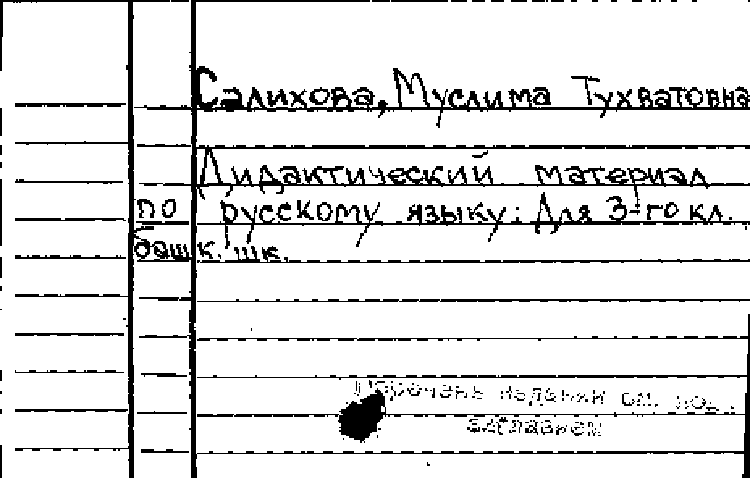 Салихова, Муслима Тухватовна
Дидактический материал
по русскому языку: Для 3-го кл.
башк. шк.
Перечень изданий см. под
заглавием